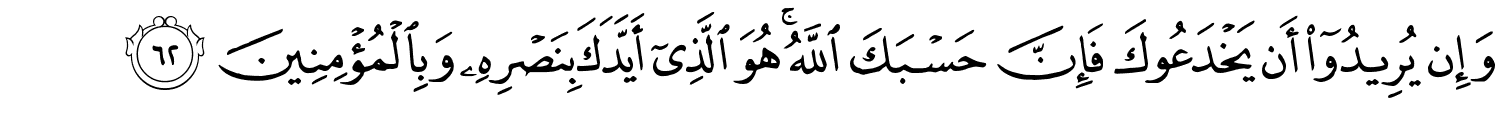 وَإِن يُرِيدُوٓا۟ أَن يَخْدَعُوكَ فَإِنَّ حَسْبَكَ ٱللَّهُ ۚ هُوَ ٱلَّذِىٓ أَيَّدَكَ بِنَصْرِهِۦ وَبِٱلْمُؤْمِنِينَ ٦٢